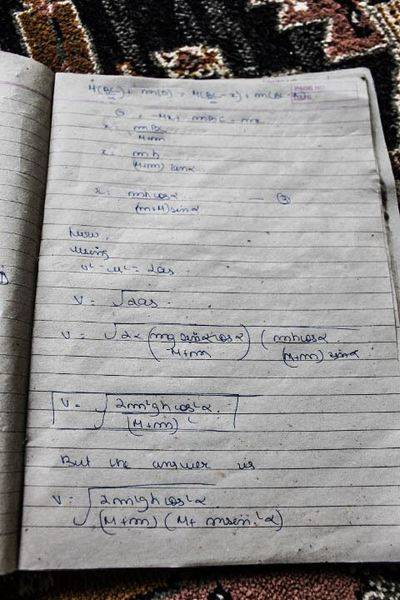 M(BC/2) + m(0) = M(BC/2 - x) + m(BC - x)
0 = -Mx + mBC - mx
x = mBC/(M+m)
x = mh/((M+m) tanα)
x = mhcosα/((m+M)sinα) — ③
Now,
using
v² - u² = 2as
V = √2as.
V = √2×(mg sinα cosα/(M+m)) (mhcosα/((M+m) sinα
V = √(2m²ghcos²α/(M+m)²)
But the answer is
V = √(2m²ghcos²α/((M+m)(M+msin²α)))